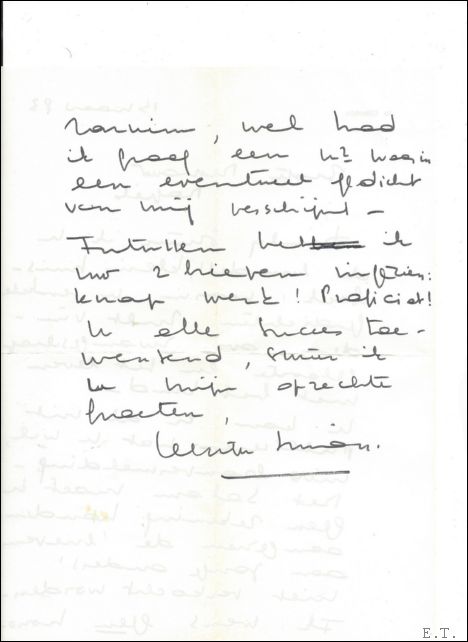 wel had
ik graag een nr waarin
een eventueel gedicht
van mij verschijnt -
Intussen heb ik
uw 2 brieven ingezien:
knap werk! Proficiat!
U alle succes toe-
wensend, stuur ik
u mijn oprechte
groeten,
E.T.